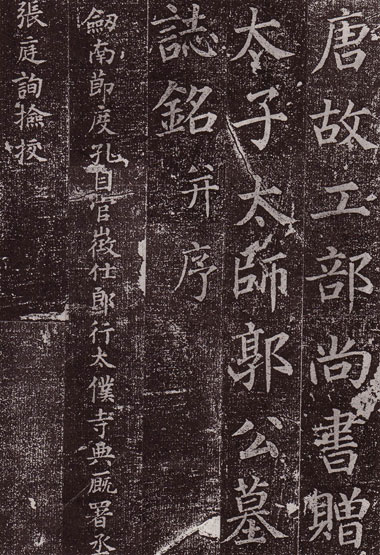 唐故工部尚書贈
太子太師郭公墓
誌銘并序
劒南節度孔目官徵仕郎行太僕寺典厩署丞
張庭詢撿挍